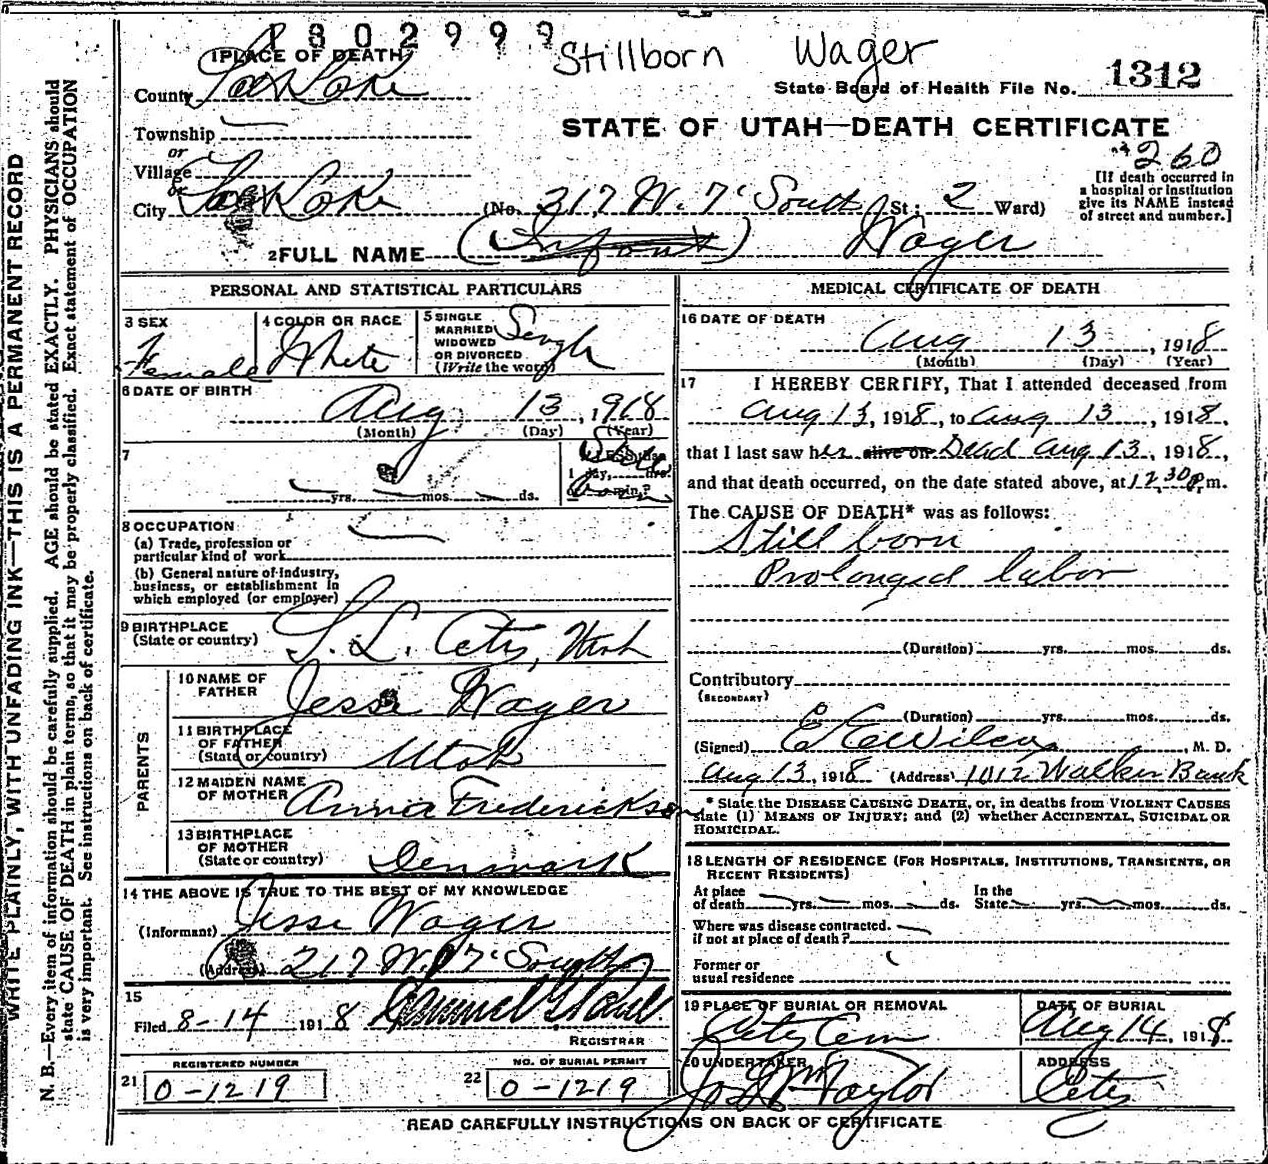 1302999
Stillborn Wager
1 PLACE OF DEATH
County Salt Lake
State Board of Health File No. 1312
Township
or
Village
or
City Salt Lake
STATE OF UTAH—DEATH CERTIFICATE
260
(No. 217 W. 7' South St; 2 Ward)
[If death occurred in
a hospital or institution
give its NAME instead
of street and number.]
2 FULL NAME (Infant) Wager
PERSONAL AND STATISTICAL PARTICULARS
3 SEX
Female
4 COLOR OR RACE
White
5 SINGLE
MARRIED
WIDOWED
OR DIVORCED
(Write the word)
Single
6 DATE OF BIRTH
Aug 13, 1918
(Month) (Day) (Year)
7
yrs. mos. ds.
If LESS than
1 day, hrs.
or min.?
Still
born
8 OCCUPATION
(a) Trade, profession or
particular kind of work
(b) General nature of industry,
business, or establishment in
which employed (or employer)
9 BIRTHPLACE
(State or country) S. L. City, Utah
PARENTS
10 NAME OF
FATHER Jesse Wager
11 BIRTHPLACE
OF FATHER
(State or country) Utah
12 MAIDEN NAME
OF MOTHER Anna Frederickson
13 BIRTHPLACE
OF MOTHER
(State or country) Denmark
14 THE ABOVE IS TRUE TO THE BEST OF MY KNOWLEDGE
(Informant) Jesse Wager
(Address) 217 W. 7' South
15
Filed 8-14 1918
REGISTRAR
REGISTERED NUMBER
21 0-1219
NO. OF BURIAL PERMIT
22 0-1219
MEDICAL CERTIFICATE OF DEATH
16 DATE OF DEATH
Aug 13, 1918
(Month) (Day) (Year)
17 I HEREBY CERTIFY, That I attended deceased from
Aug 13, 1918, to Aug 13, 1918,
that I last saw her alive on Dead Aug 13, 1918,
and that death occurred, on the date stated above, at 12.30 P.m.
The CAUSE OF DEATH* was as follows:
Still born
Prolonged labor
(Duration) yrs. mos. ds.
Contributory
(SECONDARY)
(Duration) yrs. mos. ds.
(Signed) E E Wilcox, M. D.
Aug 13, 1918 (Address) 1012 Walker Bank
* State the DISEASE CAUSING DEATH, or, in deaths from VIOLENT CAUSES
state (1) MEANS OF INJURY; and (2) whether ACCIDENTAL, SUICIDAL OR
HOMICIDAL.
18 LENGTH OF RESIDENCE (FOR HOSPITALS, INSTITUTIONS, TRANSIENTS, OR
RECENT RESIDENTS)
At place
of death yrs. mos. ds.
In the
State yrs. mos. ds.
Where was disease contracted.
if not at place of death?
Former or
usual residence
19 PLACE OF BURIAL OR REMOVAL
City Cem
DATE OF BURIAL
Aug 14, 1918
20 UNDERTAKER
Jos Wm Taylor
ADDRESS
City
READ CAREFULLY INSTRUCTIONS ON BACK OF CERTIFICATE
WRITE PLAINLY, WITH UNFADING INK—THIS IS A PERMANENT RECORD
N. B.—Every item of information should be carefully supplied. AGE should be stated EXACTLY. PHYSICIANS should
state CAUSE OF DEATH in plain terms, so that it may be properly classified. Exact statement of OCCUPATION
is very important. See instructions on back of certificate.